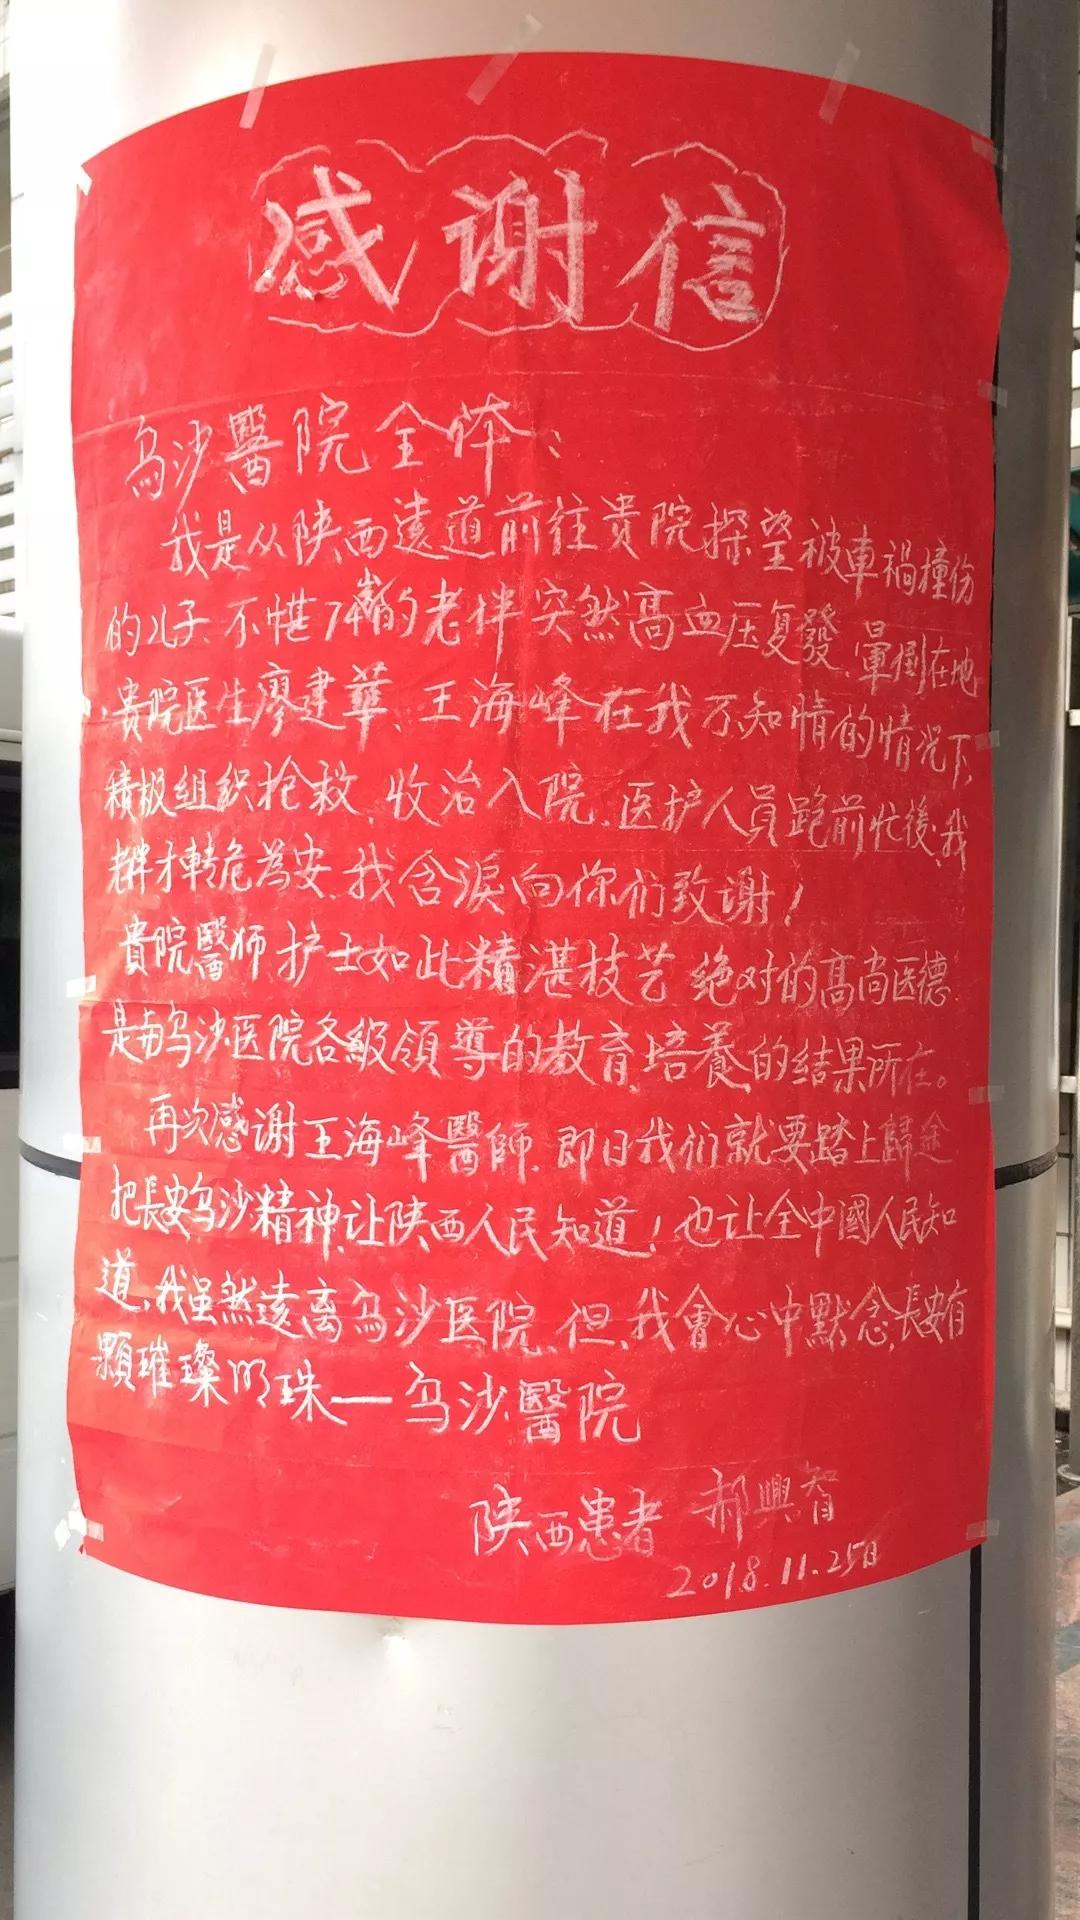 感谢信
乌沙醫院全体：
我是从陕西遠道前往贵院探望被車禍撞伤
的儿子.不惜74嵗的老伴突然高血压复發.暈倒在地
.贵院医生廖建華、王海峰在我不知情的情况下,
積极组织抢救.收治入院.医护人員跑前忙後,我
老伴才转危為安.我含淚向你们致谢！
貴院醫师护士如此精湛技艺绝对的高尚医德.
是与乌沙医院各級領導的教育.培養的结果所在。
再次感谢王海峰醫師.即日我们就要踏上歸途
把長安乌沙精神让陕西人民知道！也让全中國人民知
道,我虽然遠离乌沙医院.但,我會心中默念,長安有
顆璀璨明珠—乌沙醫院
陕西患者 郝興智
2018.11.25日